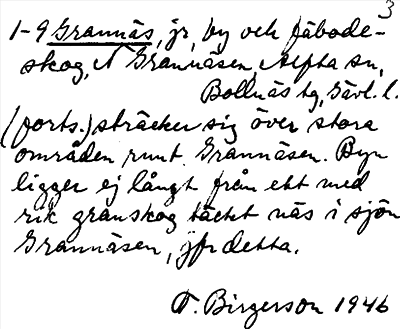 3
1-9 Grannäs, jr, by och fäbode-
skog, N Grannäsen, Alfta sn,
Bollnäs tg, Gävl. l.
(forts.) sträcker sig över stora
områden runt Grannäsen. Byn
ligger ej långt från ett med
rik granskog täckt näs i sjön
Grannäsen, jfr detta.
F. Birgerson 1946